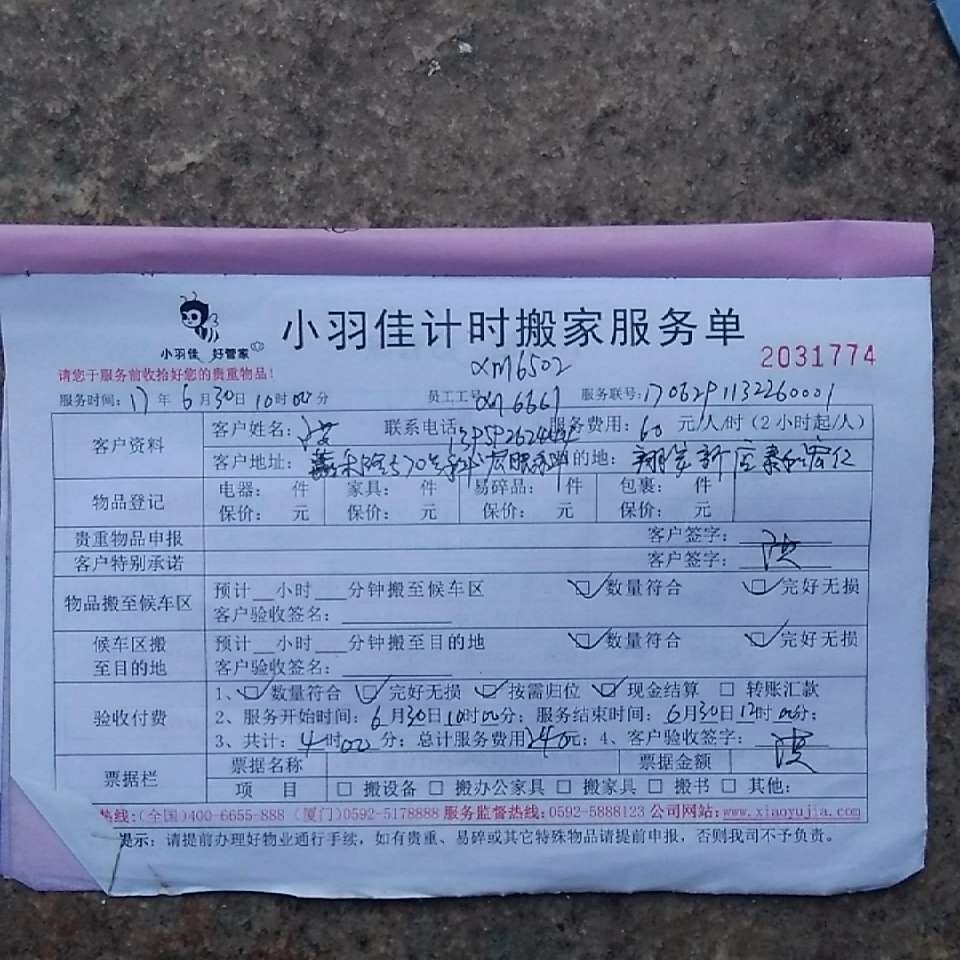 小羽佳计时搬家服务单
小羽佳 好管家
2031774
请您于服务前收拾好您的贵重物品!
XM6502
服务时间: 17年 6月30日10时00分 员工工号: XM6661 服务联号: 1706291132260001
客户资料
客户姓名: 联系电话: 服务费用: 60 元/人/时(2小时起/人)
客户地址: 目的地:
物品登记
电器: 件 家具: 件 易碎品: 件 包裹: 件
保价: 元 保价: 元 保价: 元 保价: 元
贵重物品申报 客户签字:
客户特别承诺 客户签字:
物品搬至候车区
预计__小时___分钟搬至候车区 数量符合 完好无损
客户验收签名:
候车区搬至目的地
预计__小时___分钟搬至目的地 数量符合 完好无损
客户验收签名:
验收付费
1、数量符合 完好无损 按需归位 现金结算 转账汇款
2、服务开始时间: 6月30日10时00分; 服务结束时间: 6月30日12时00分;
3、共计: 4时00分; 总计服务费用240元; 4、客户验收签字:
票据栏
票据名称 票据金额
项 目 搬设备 搬办公家具 搬家具 搬书 其他:
热线:(全国)400-6655-888 (厦门)0592-5178888 服务监督热线:0592-5888123 公司网站:www.xiaoyujia.com
提示: 请提前办理好物业通行手续, 如有贵重、易碎或其它特殊物品请提前申报, 否则我司不予负责。